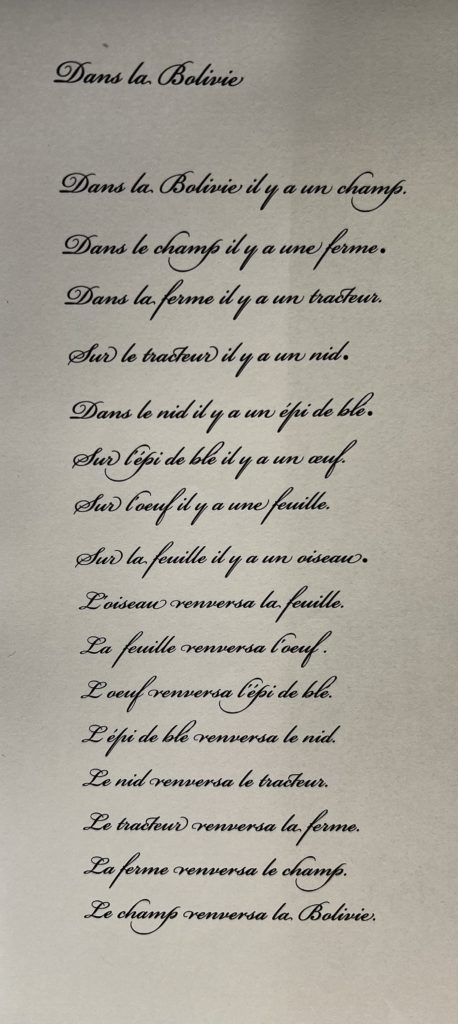 Dans la Bolivie
Dans la Bolivie il y a un champ.
Dans le champ il y a une ferme.
Dans la ferme il y a un tracteur.
Sur le tracteur il y a un nid.
Dans le nid il y a un épi de ble.
Sur l'épi de ble il y a un œuf.
Sur l'oeuf il y a une feuille.
Sur la feuille il y a un oiseau.
L'oiseau renversa la feuille.
La feuille renversa l'oeuf.
L'oeuf renversa l'épi de ble.
L'épi de ble renversa le nid.
Le nid renversa le tracteur.
Le tracteur renversa la ferme.
La ferme renversa le champ.
Le champ renversa la Bolivie.